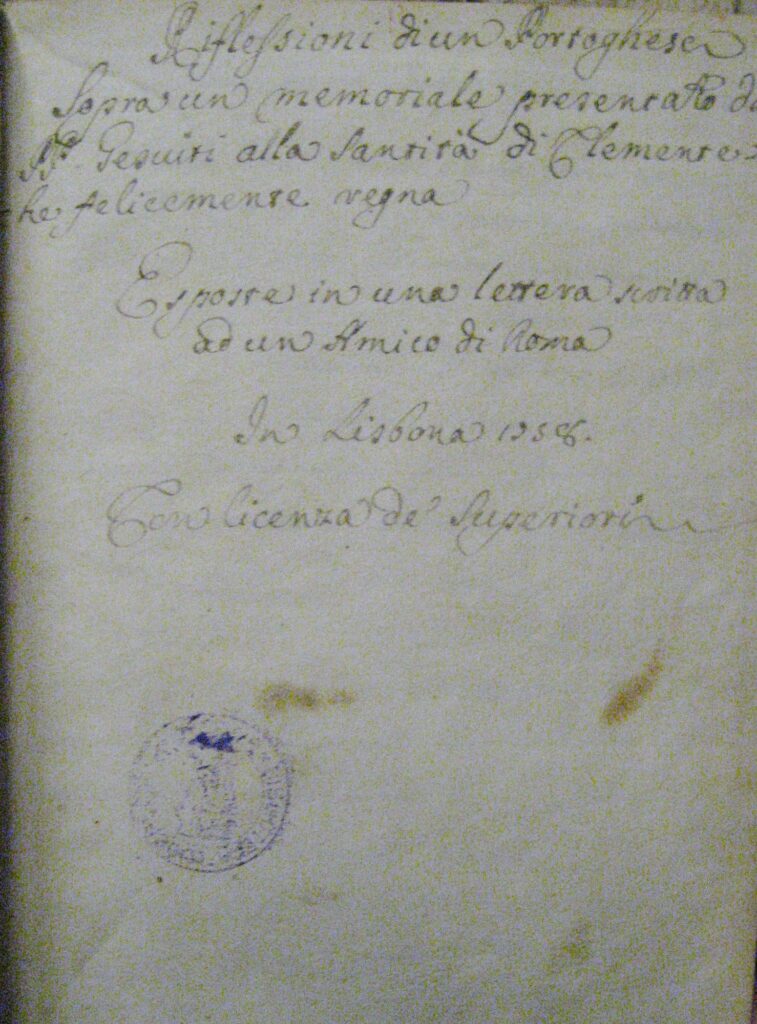 Riflessioni di un Portoghese
Sopra un memoriale presentato da
PP. Gesuiti alla Santità di Clemente
he felicemente regna
Esposte in una lettera scritta
ad un Amico di Roma
In Lisbona 1758.
Con licenza de' Superiori